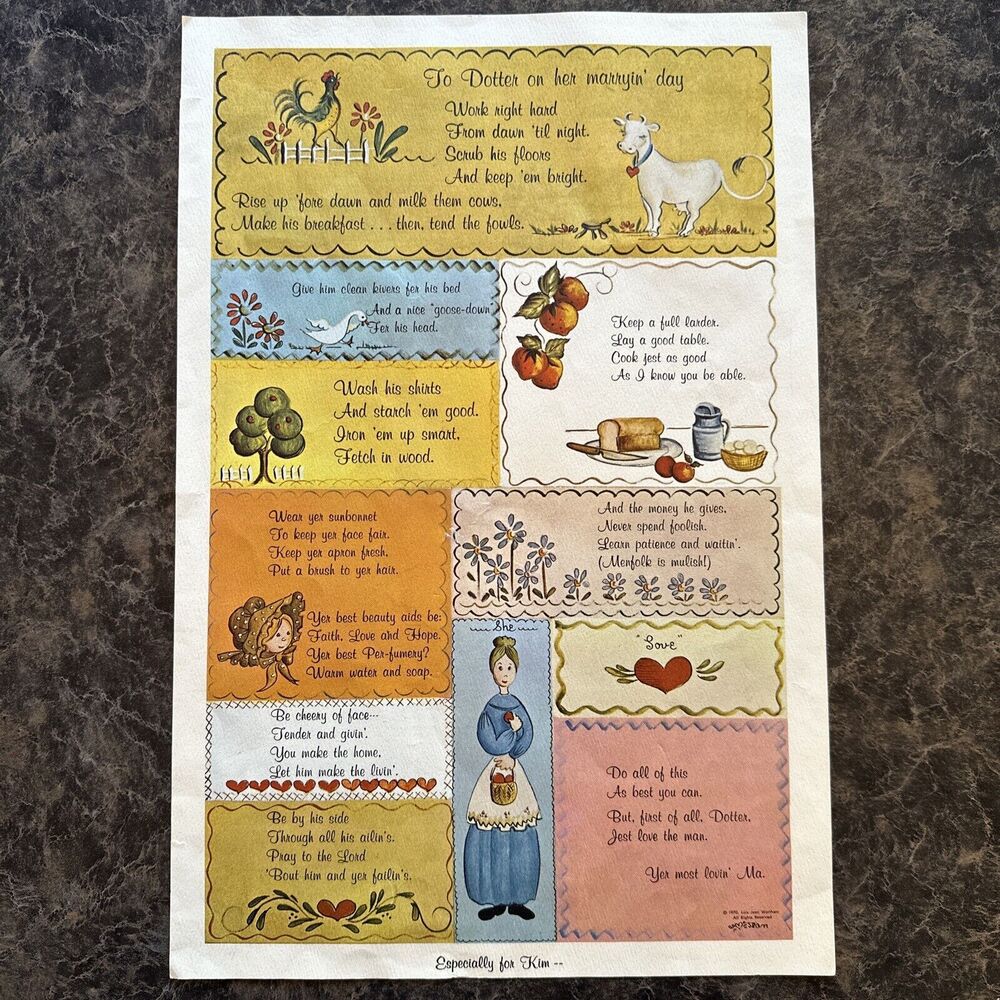 To Dotter on her marryin' day
Work right hard
From dawn 'til night.
Scrub his floors
And keep 'em bright.
Rise up 'fore dawn and milk them cows.
Make his breakfast . . . then, tend the fowls.
Give him clean kivers fer his bed
And a nice "goose-down"
Fer his head.
Keep a full larder.
Lay a good table.
Cook jest as good
As I know you be able.
Wash his shirts
And starch 'em good.
Iron 'em up smart,
Fetch in wood.
Wear yer sunbonnet
To keep yer face fair.
Keep yer apron fresh.
Put a brush to yer hair.
Yer best beauty aids be:
Faith, Love and Hope.
Yer best Per-fumery?
Warm water and soap.
And the money he gives,
Never spend foolish.
Learn patience and waitin'.
(Menfolk is mulish!)
She
"Love"
Be cheery of face---
Tender and givin'.
You make the home,
Let him make the livin'.
Be by his side
Through all his ailin's.
Pray to the Lord
'Bout him and yer failin's.
Do all of this
As best you can.
But, first of all, Dotter,
Jest love the man.
Yer most lovin' Ma.
© 1970, Lois Jean,
All Rights Reserved
Especially for Kim --